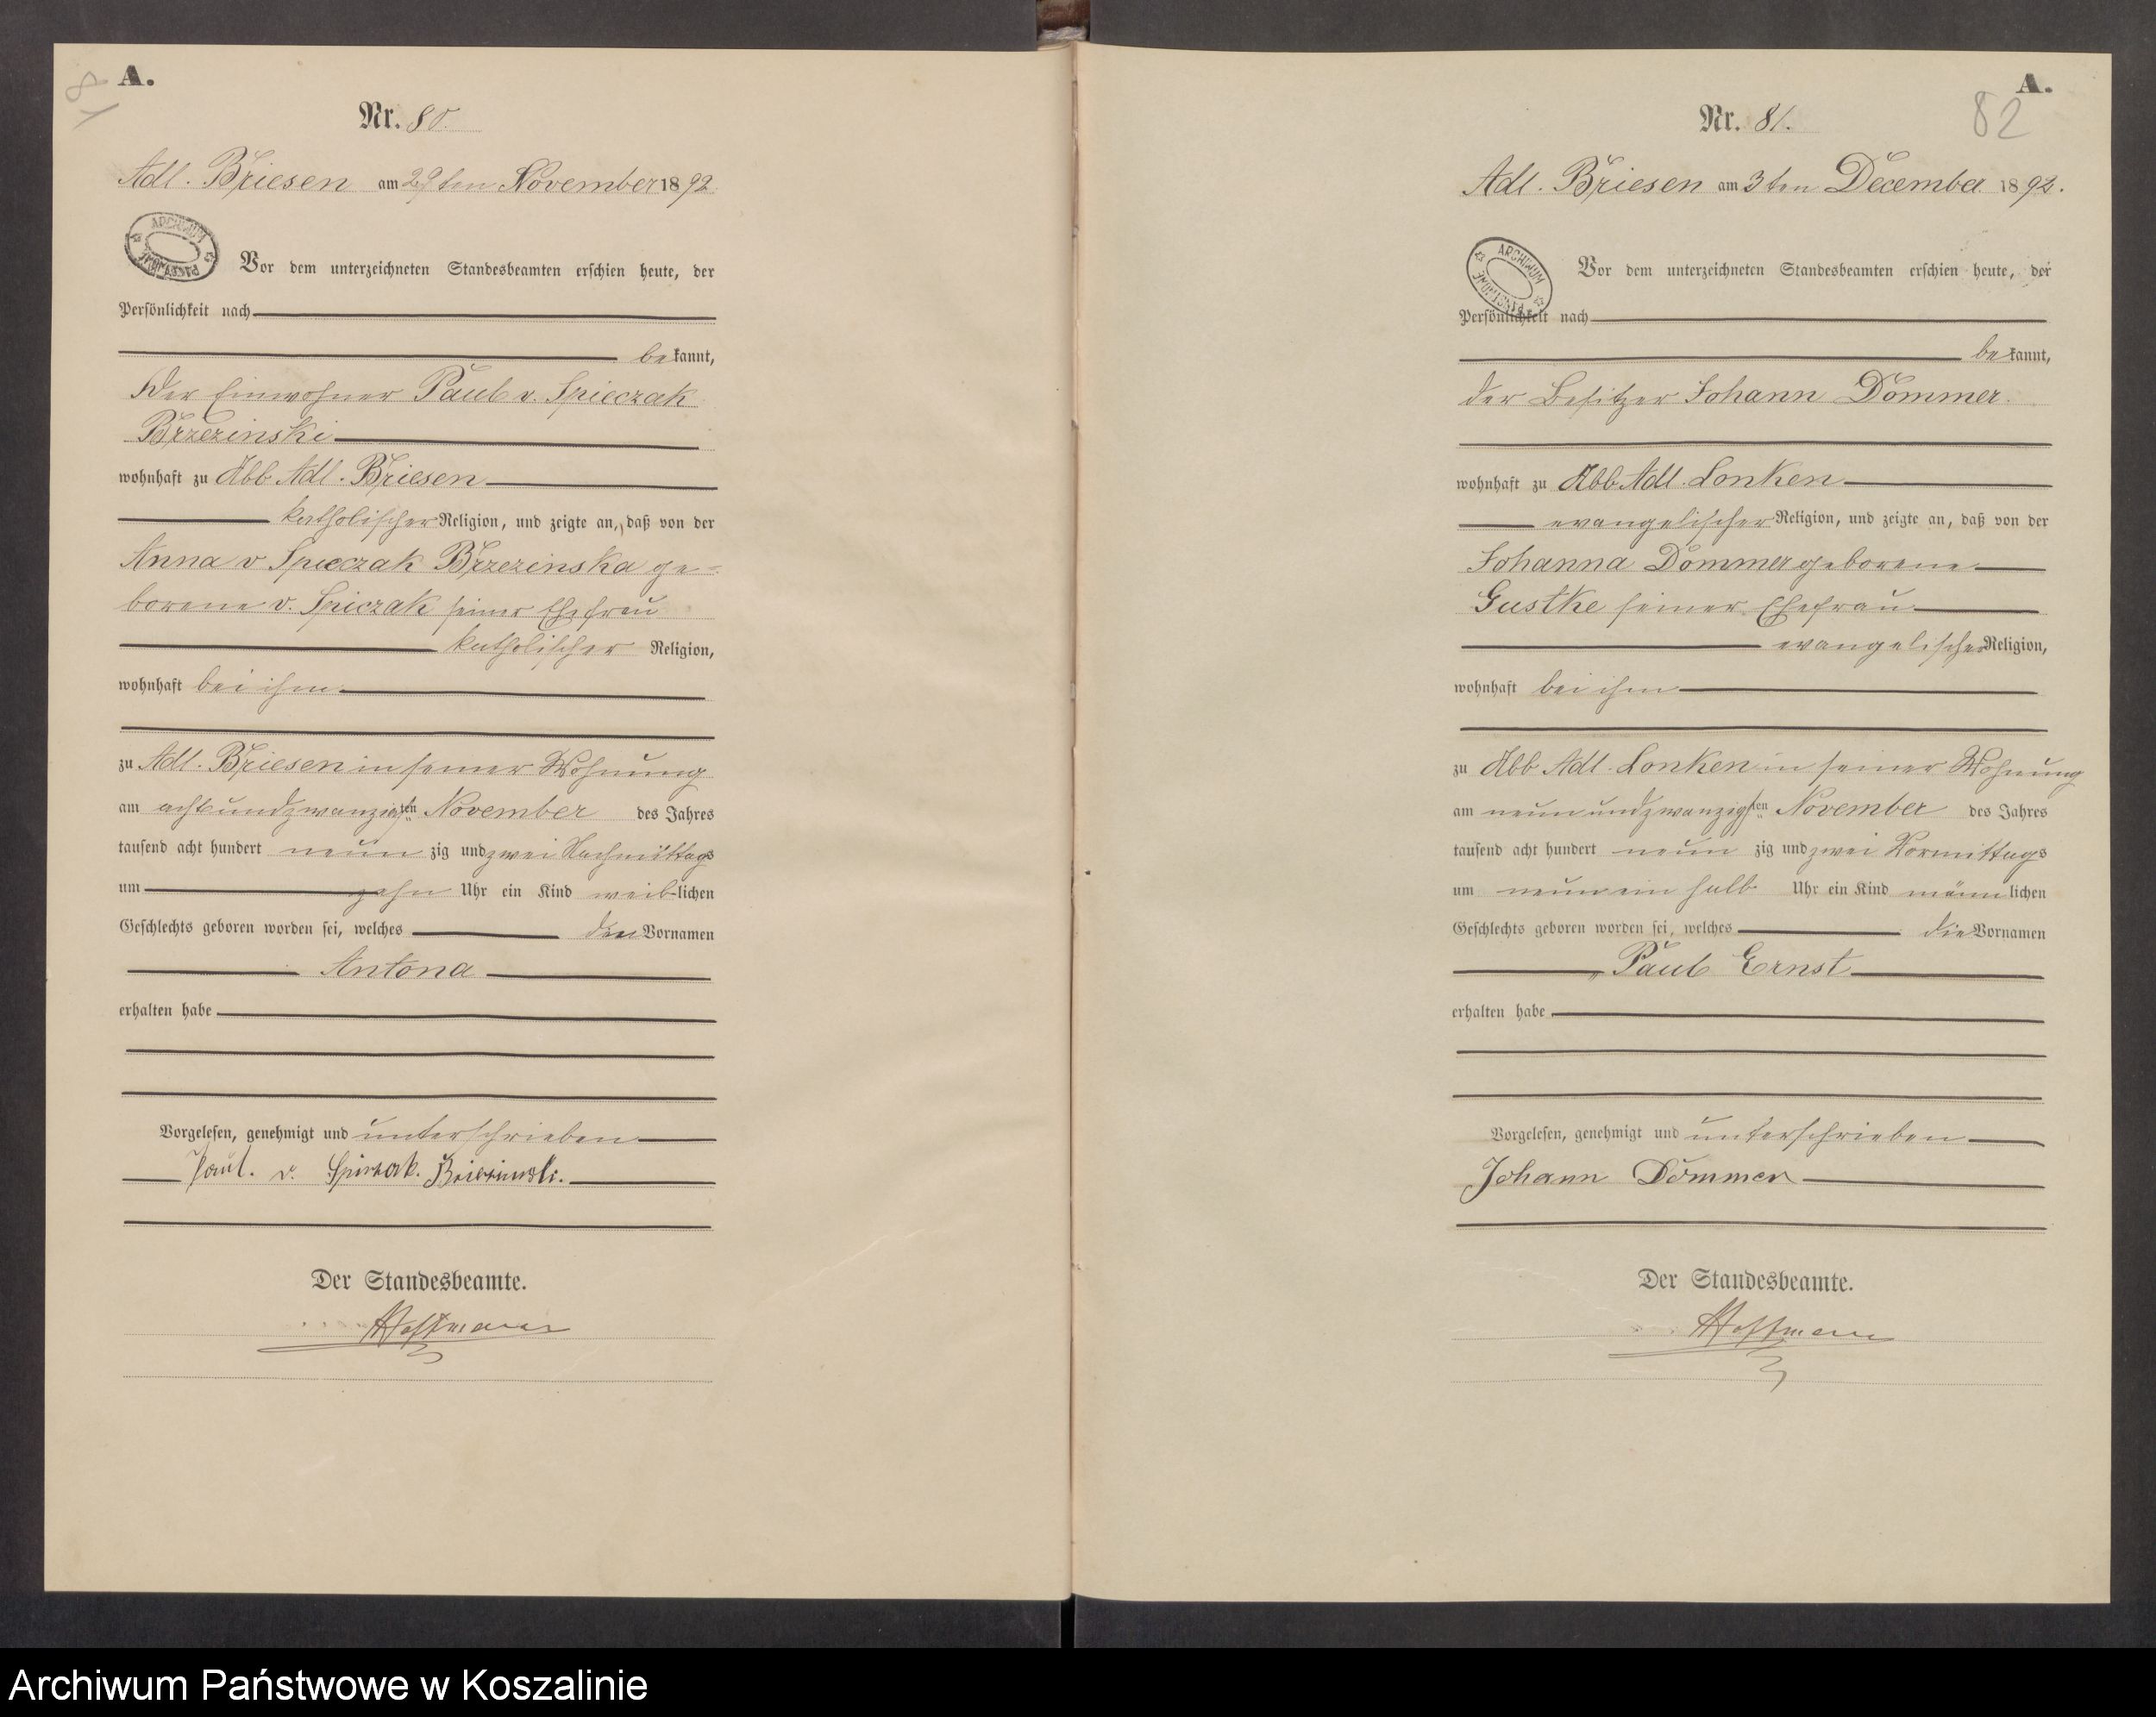 81
A.
Nr. 80.
Adl. Briesen am 29ten November 1892.
ARCHIWUM PAŃSTWOWE
Vor dem unterzeichneten Standesbeamten erschien heute, der
Persönlichkeit nach
bekannt,
der Einwohner Paul v. Spieczak
Brzezinski
wohnhaft zu Abb Adl. Briesen
katholischer Religion, und zeigte an, daß von der
Anna v Spieczak Brzezinska ge=
borene v. Spiczak seiner Ehefrau
katholischer Religion,
wohnhaft bei ihm
zu Adl. Briesen in seiner Wohnung
am achtundzwanzigsten November des Jahres
tausend acht hundert neunzig und zwei Nachmittags
um zehn Uhr ein Kind weiblichen
Geschlechts geboren worden sei, welches den Vornamen
Antona
erhalten habe
Vorgelesen, genehmigt und unterschrieben
Paul. v. Brzezinski.
Der Standesbeamte.
Hoffmann
A.
82
Nr. 81.
Adl. Briesen am 3ten December 1892.
ARCHIWUM PAŃSTWOWE
Vor dem unterzeichneten Standesbeamten erschien heute, der
Persönlichkeit nach
bekannt,
der Besitzer Johann Dommer.
wohnhaft zu Abb Adl. Lonken
evangelischer Religion, und zeigte an, daß von der
Johanna Dommer geborene
Gustke seiner Ehefrau
evangelischer Religion,
wohnhaft bei ihm
zu Abb Adl. Lonken in seiner Wohnung
am neunundzwanzigsten November des Jahres
tausend acht hundert neunzig und zwei Vormittags
um neun ein halb Uhr ein Kind männlichen
Geschlechts geboren worden sei, welches die Vornamen
Paul Ernst
erhalten habe
Vorgelesen, genehmigt und unterschrieben
Johann Dommer
Der Standesbeamte.
Hoffmann
Archiwum Państwowe w Koszalinie